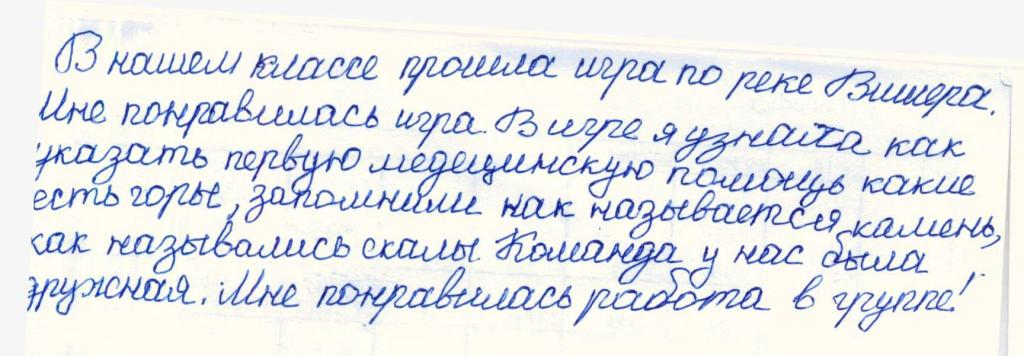 В нашем классе прошла игра по реке Вишера.
Мне понравилась игра. В игре я узнала как
указать первую медецинскую помощь какие
есть горы, запомнили как называется камень,
как назывались скалы Команда у нас была
дружная. Мне понравилась работа в группе!